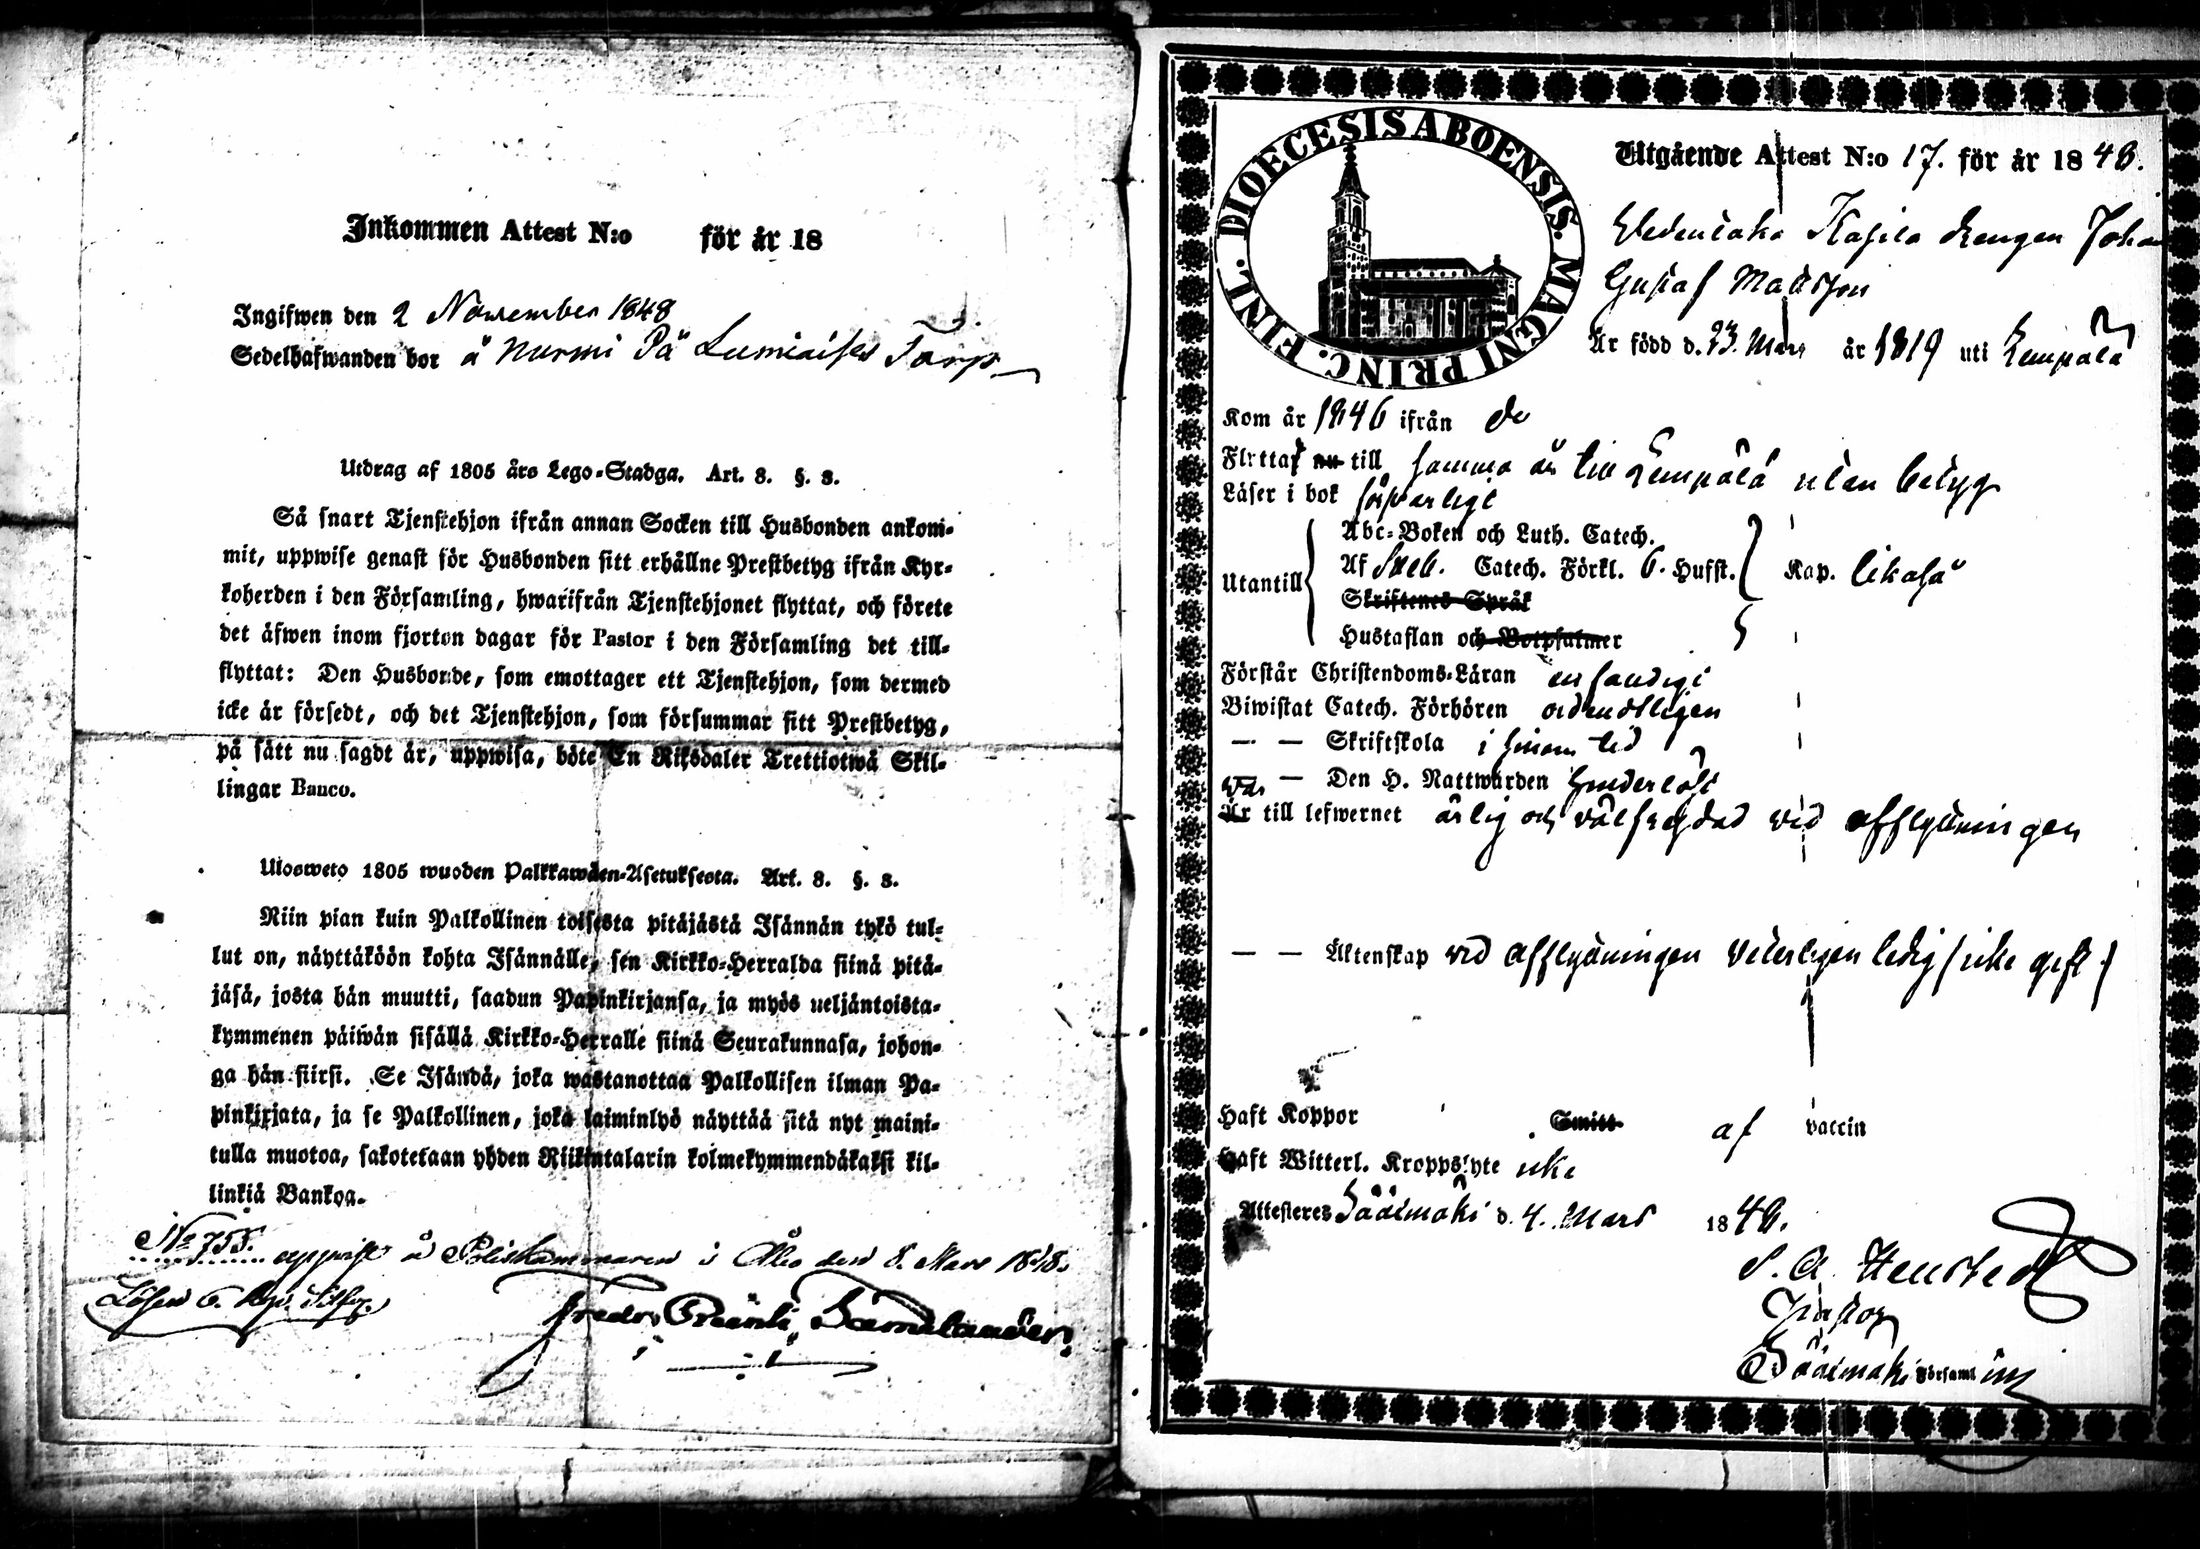 Inkommen Attest N:o för år 18
Ingifwen den 2 November 1848
Sedelhafwanden bor å Nurmi På Lumiaises Torp
Utdrag af 1805 års Lego-Stadga. Art. 8. §. 3.
Så snart Tjenstehjon ifrån annan Socken till Husbonden ankom-
mit, uppwise genast för Husbonden sitt erhållne Prestbetyg ifrån Kyr-
koherden i den Församling, hwarifrån Tjenstehjonet flyttat, och förete
det äfwen inom fjorton dagar för Pastor i den Församling det till-
flyttat: Den Husbonde, som emottager ett Tjenstehjon, som dermed
icke är försedt, och det Tjenstehjon, som försummar sitt Prestbetyg,
på sätt nu sagdt är, uppwisa, böte En Riksdaler Trettiotwå Skil-
lingar Banco.
Ulosweto 1805 wuoden Palkkawäen-Asetuksesta. Art. 8. §. 3.
Niin pian kuin Palkollinen toisesta pitäjästä Isännän tykö tul-
lut on, näyttäköön kohta Isännälle, sen Kirkko-Herralda siinä pitä-
jäsä, josta hän muutti, saadun Papinkirjansa, ja myös neljäntoista-
kymmenen päiwän sisällä Kirkko-Herralle siinä Seurakunnasa, johon-
ga hän siirsi. Se Isändä, joka wastanottaa Palkollisen ilman Pa-
pinkirjata, ja se Palkollinen, joka laiminlyö näyttää sitä nyt maini-
tulla muotoa, sakotetaan yhden Riikintalarin kolmekymmendäkaksi kil-
linkiä Bankoa.
No 755. uppvist å Poliskammaren i Åbo den 8. Mars 1848.
Lösen 6. Kop. Silfv.
Fredr.
DIOECESIS ABOENSIS. MAGNI PRINC. FINL.
Utgående Attest N:o 17. för år 1848.
Kapila drengen Johan
Gustaf Madsson
Är född d. 23. Mars år 1819 uti Lempälä
Kom år 1846 ifrån do
Flyttat nu till samma år till Lempälä utan betyg
Läser i bok försvarligt
Abc-Boken och Luth. Catech.
Utantill Af Sveb. Catech. Förkl. 6. Hufst. Kap. likaså
Skriftenes Språk
Hustaflan och Botpsalmer
Förstår Christendoms-Läran enfaldigt
Biwistat Catech. Förhören ordentligen
— — Skriftskola i sinom tid
— — Den H. Nattwarden hinderlöst
var
Är till lefwernet ärlig och välfrejdad vid afflyttningen
— — Äktenskap vid afflyttningen veterligen ledig (icke gift)
Haft Koppor Smitt af vaccin
Haft Witterl. Kroppslyte icke
Attesteres Sääksmäki d. 4. Mars 1848.
Pastor
Sääksmäki Församl